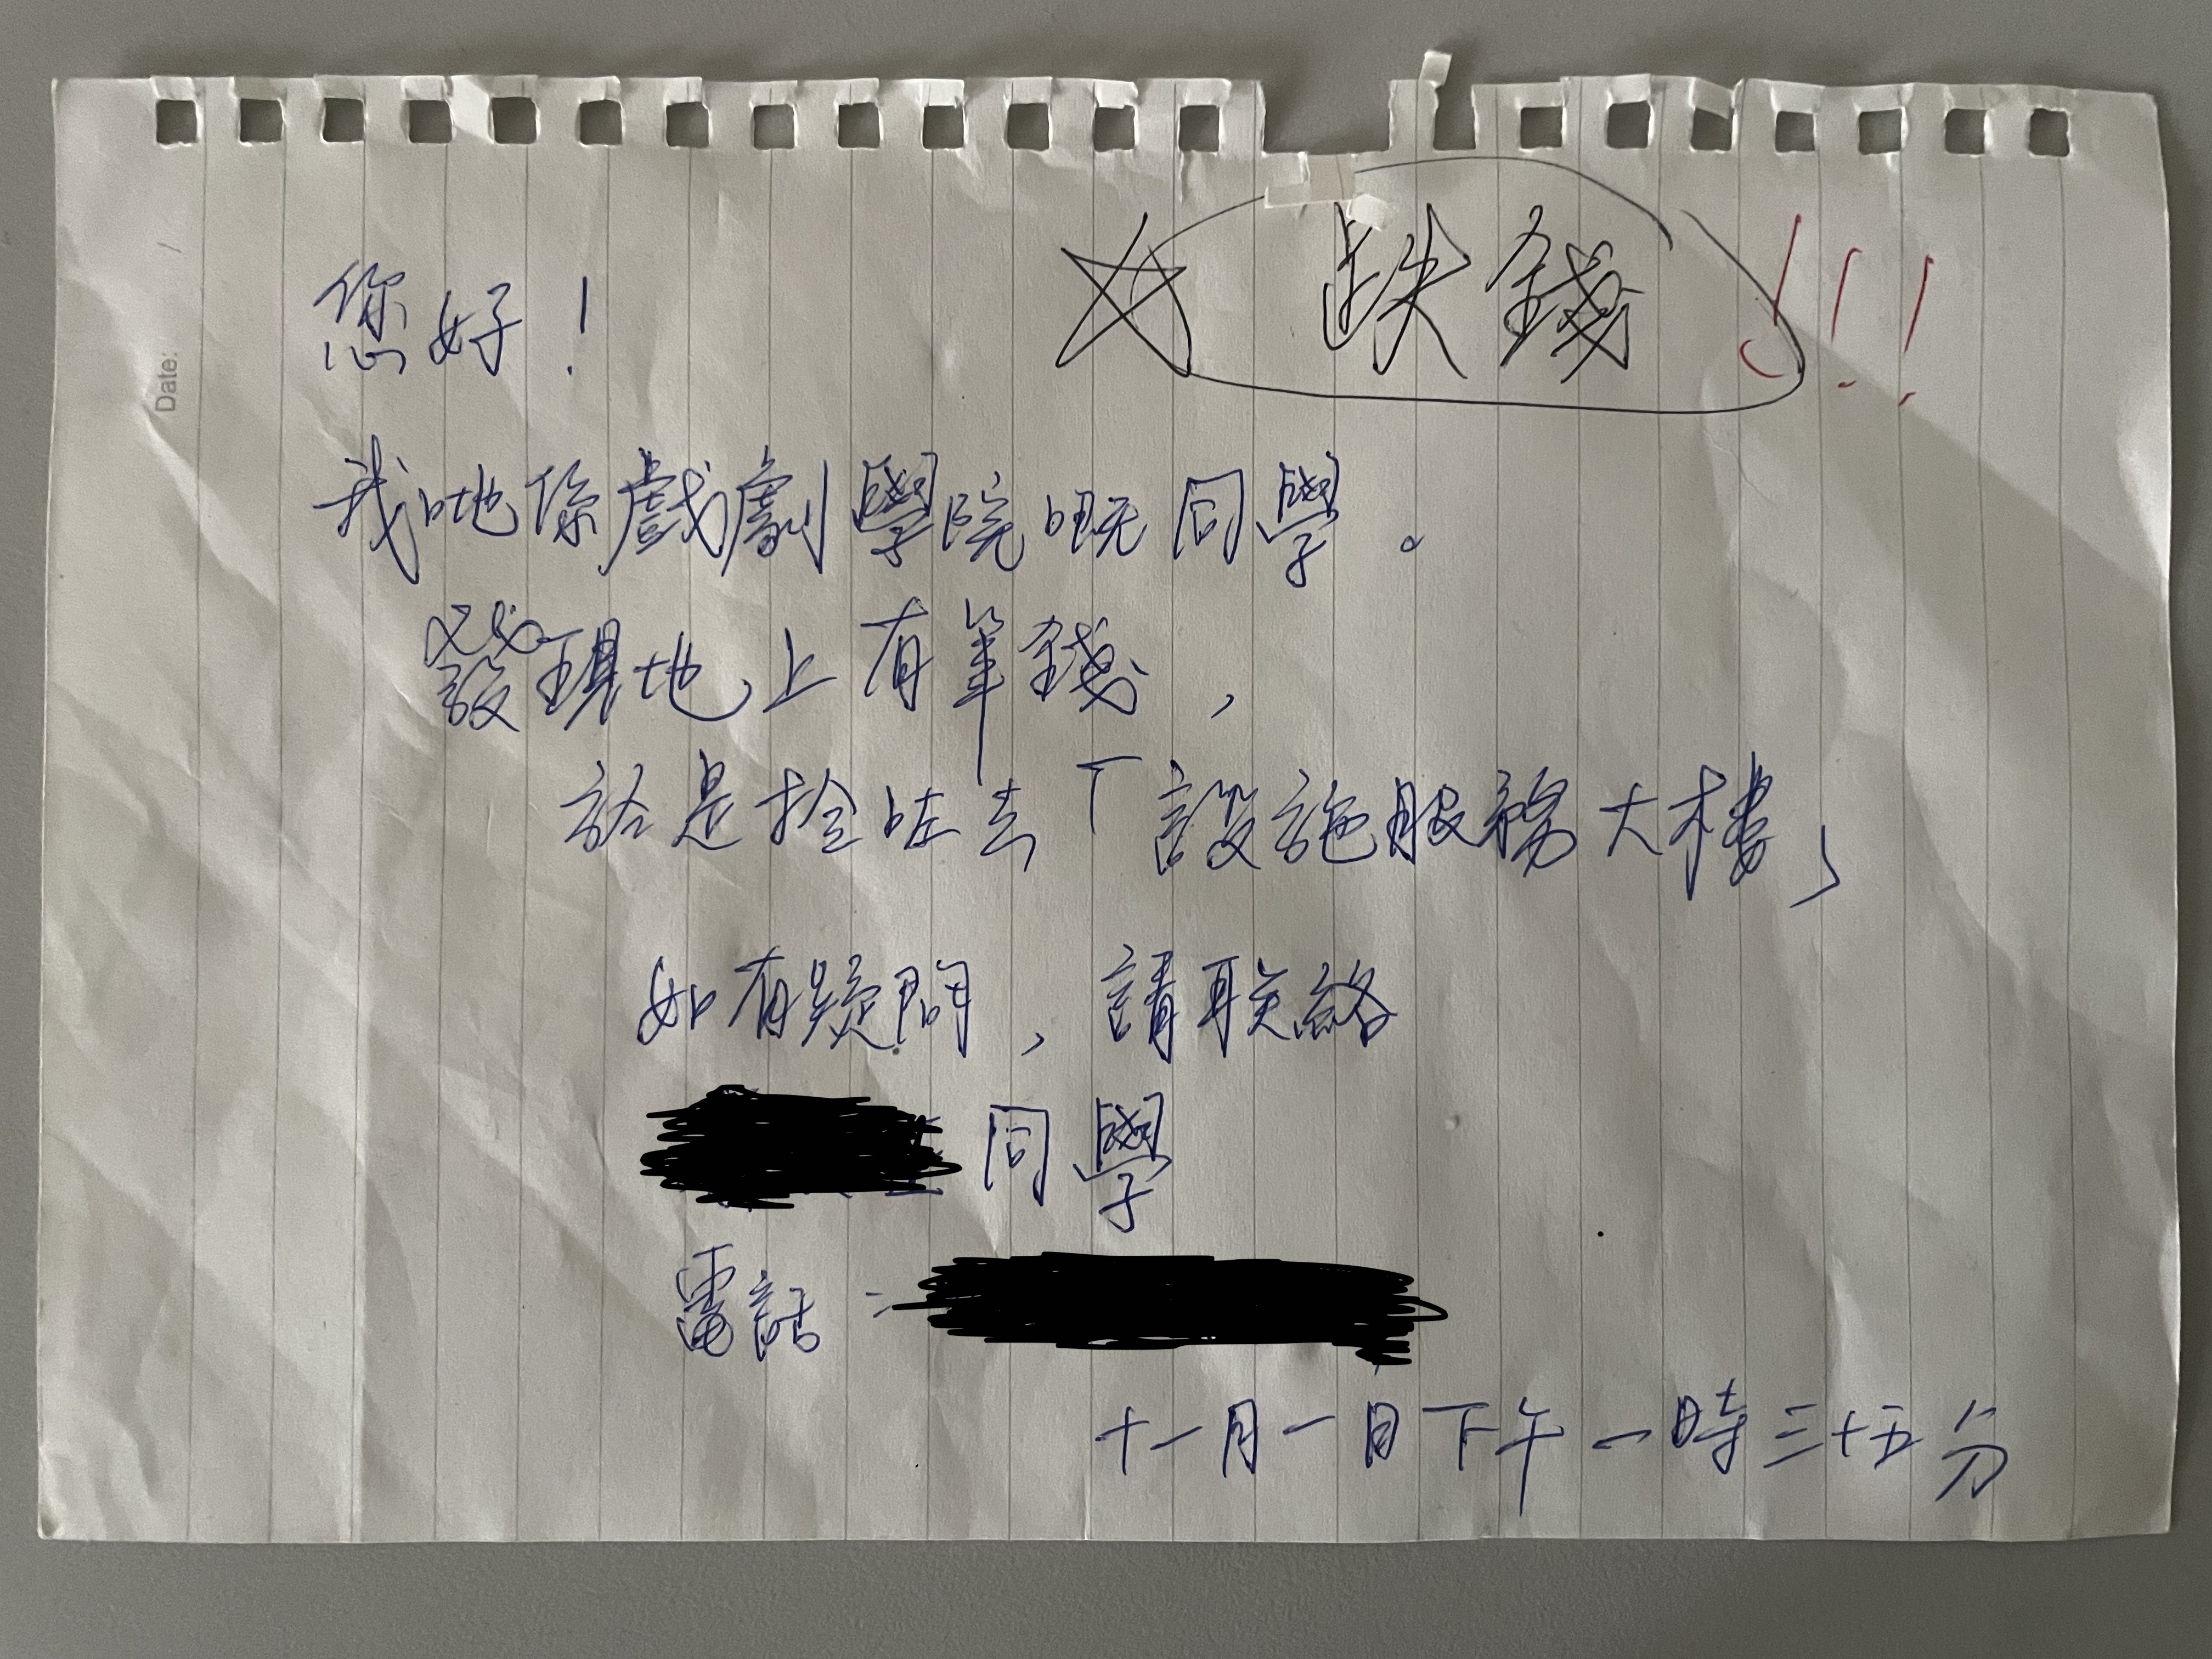 ☆ 缺錢!!!
Date: /
您好!
我哋係戲劇學院嘅同學。
發現地上有筆錢,
於是拾咗去「設施服務大樓」
如有疑問,請联絡
同學
電話:
十一月一日下午一時三十五分